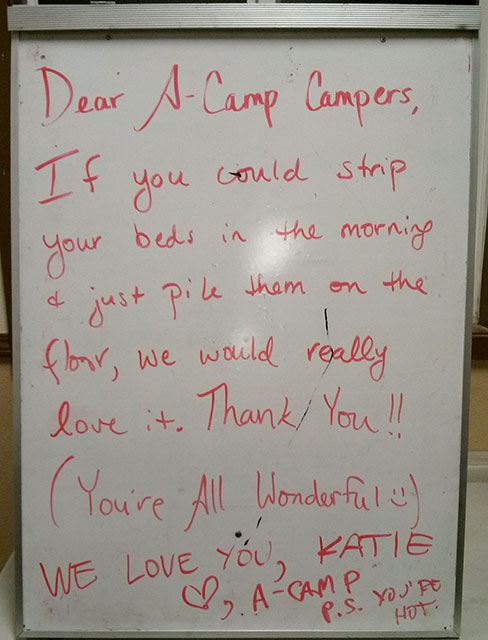 Dear A-Camp Campers,
If you could strip
your beds in the morning
& just pile them on the
floor, we would really
love it. Thank You!!
(You're All Wonderful :))
WE LOVE YOU, KATIE
♡, A-CAMP
P.S. YOU'RE
HOT.